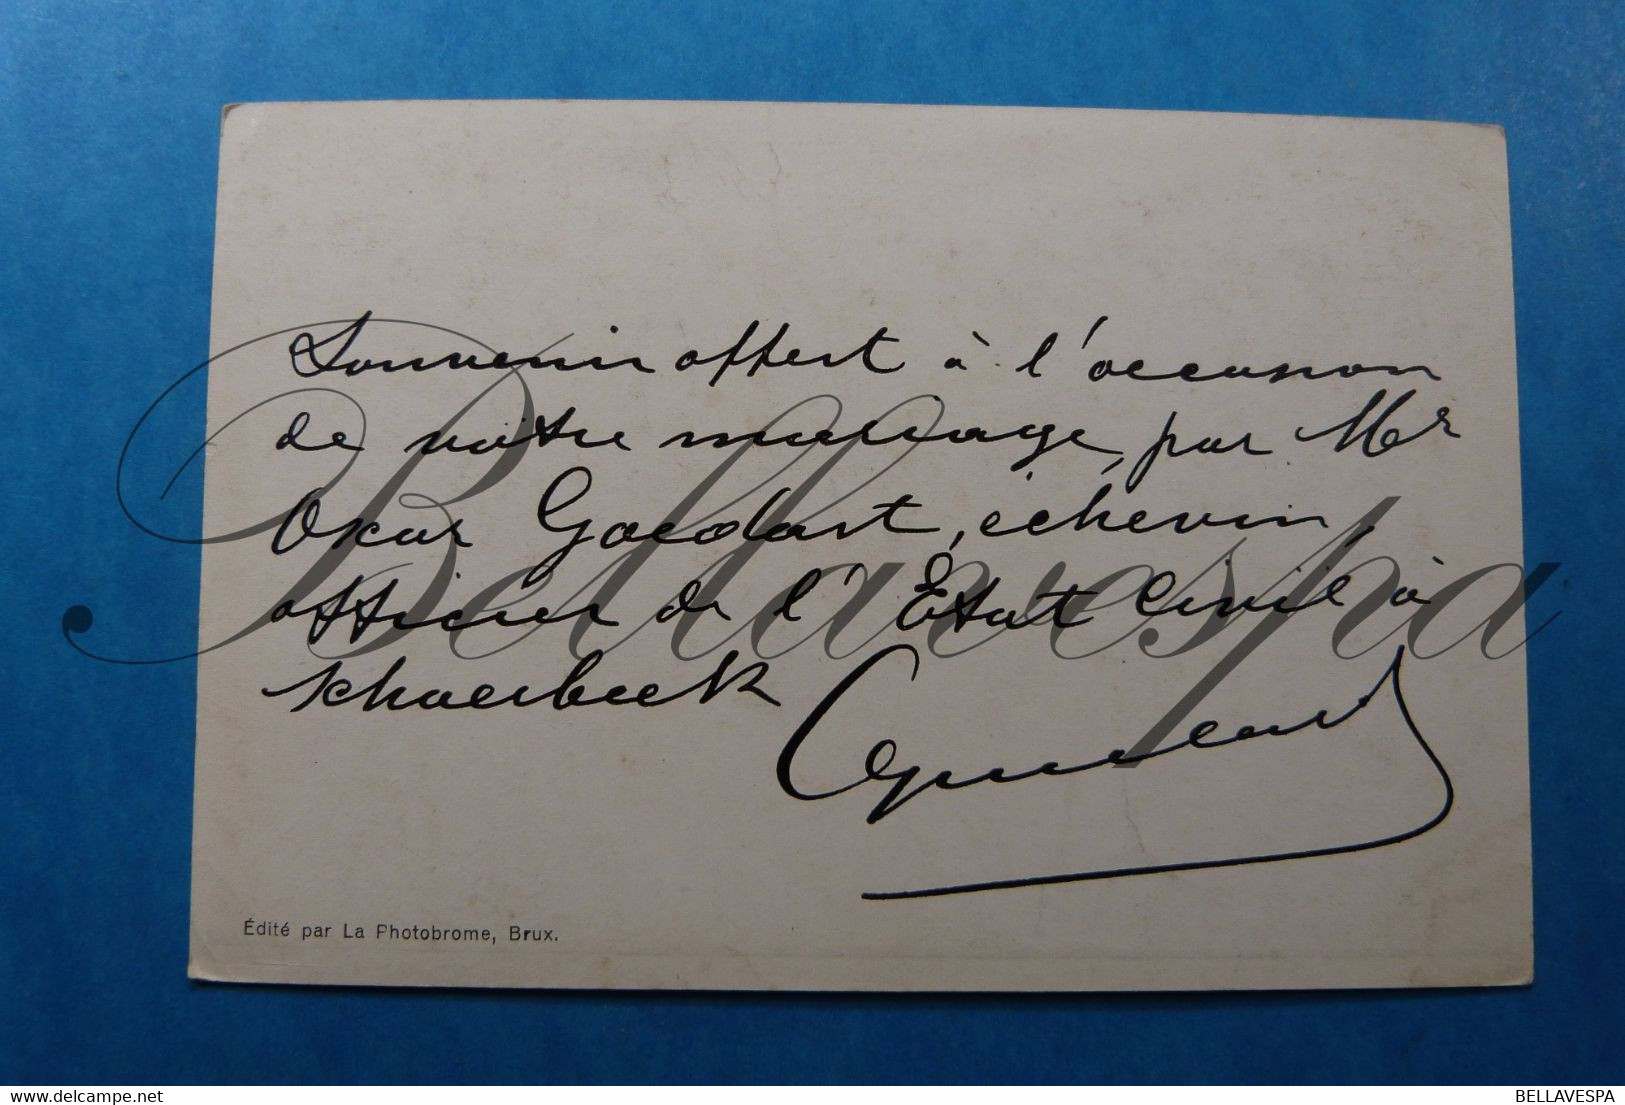 Souvenir offert à l'occasion
de notre mariage, par Mr
Oscar Goedart, échevin,
officier de l'État Civil à
Schaerbeek
Édité par La Photobrome, Brux.
Bellavespa
delcampe.net
BELLAVESPA